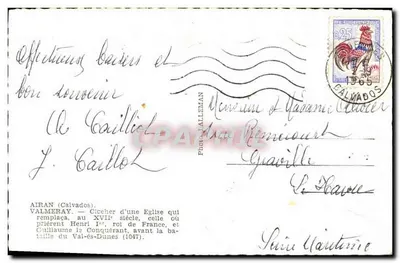 Affectueux baisers et
bon souvenir
J. Caillot
AIRAN (Calvados).
VALMERAY. — Clocher d'une Eglise qui
remplaça, au XVIIe siècle, celle où
prièrent Henri 1er, roi de France, et
Guillaume le Conquérant, avant la ba-
taille du Val-ès-Dunes (1047).
Photo ALLEMAN
1965
CALVADOS
Monsieur et Madame
Graville
Le Havre
Seine Maritime